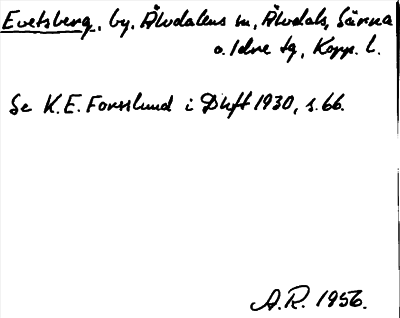 Evertsberg, by. Älvdalens sn, Älvdals, Särna
o. Idre tg, Kopp. l.
Se K. E. Forsslund i Dhft 1930, s. 66.
A.R. 1956.